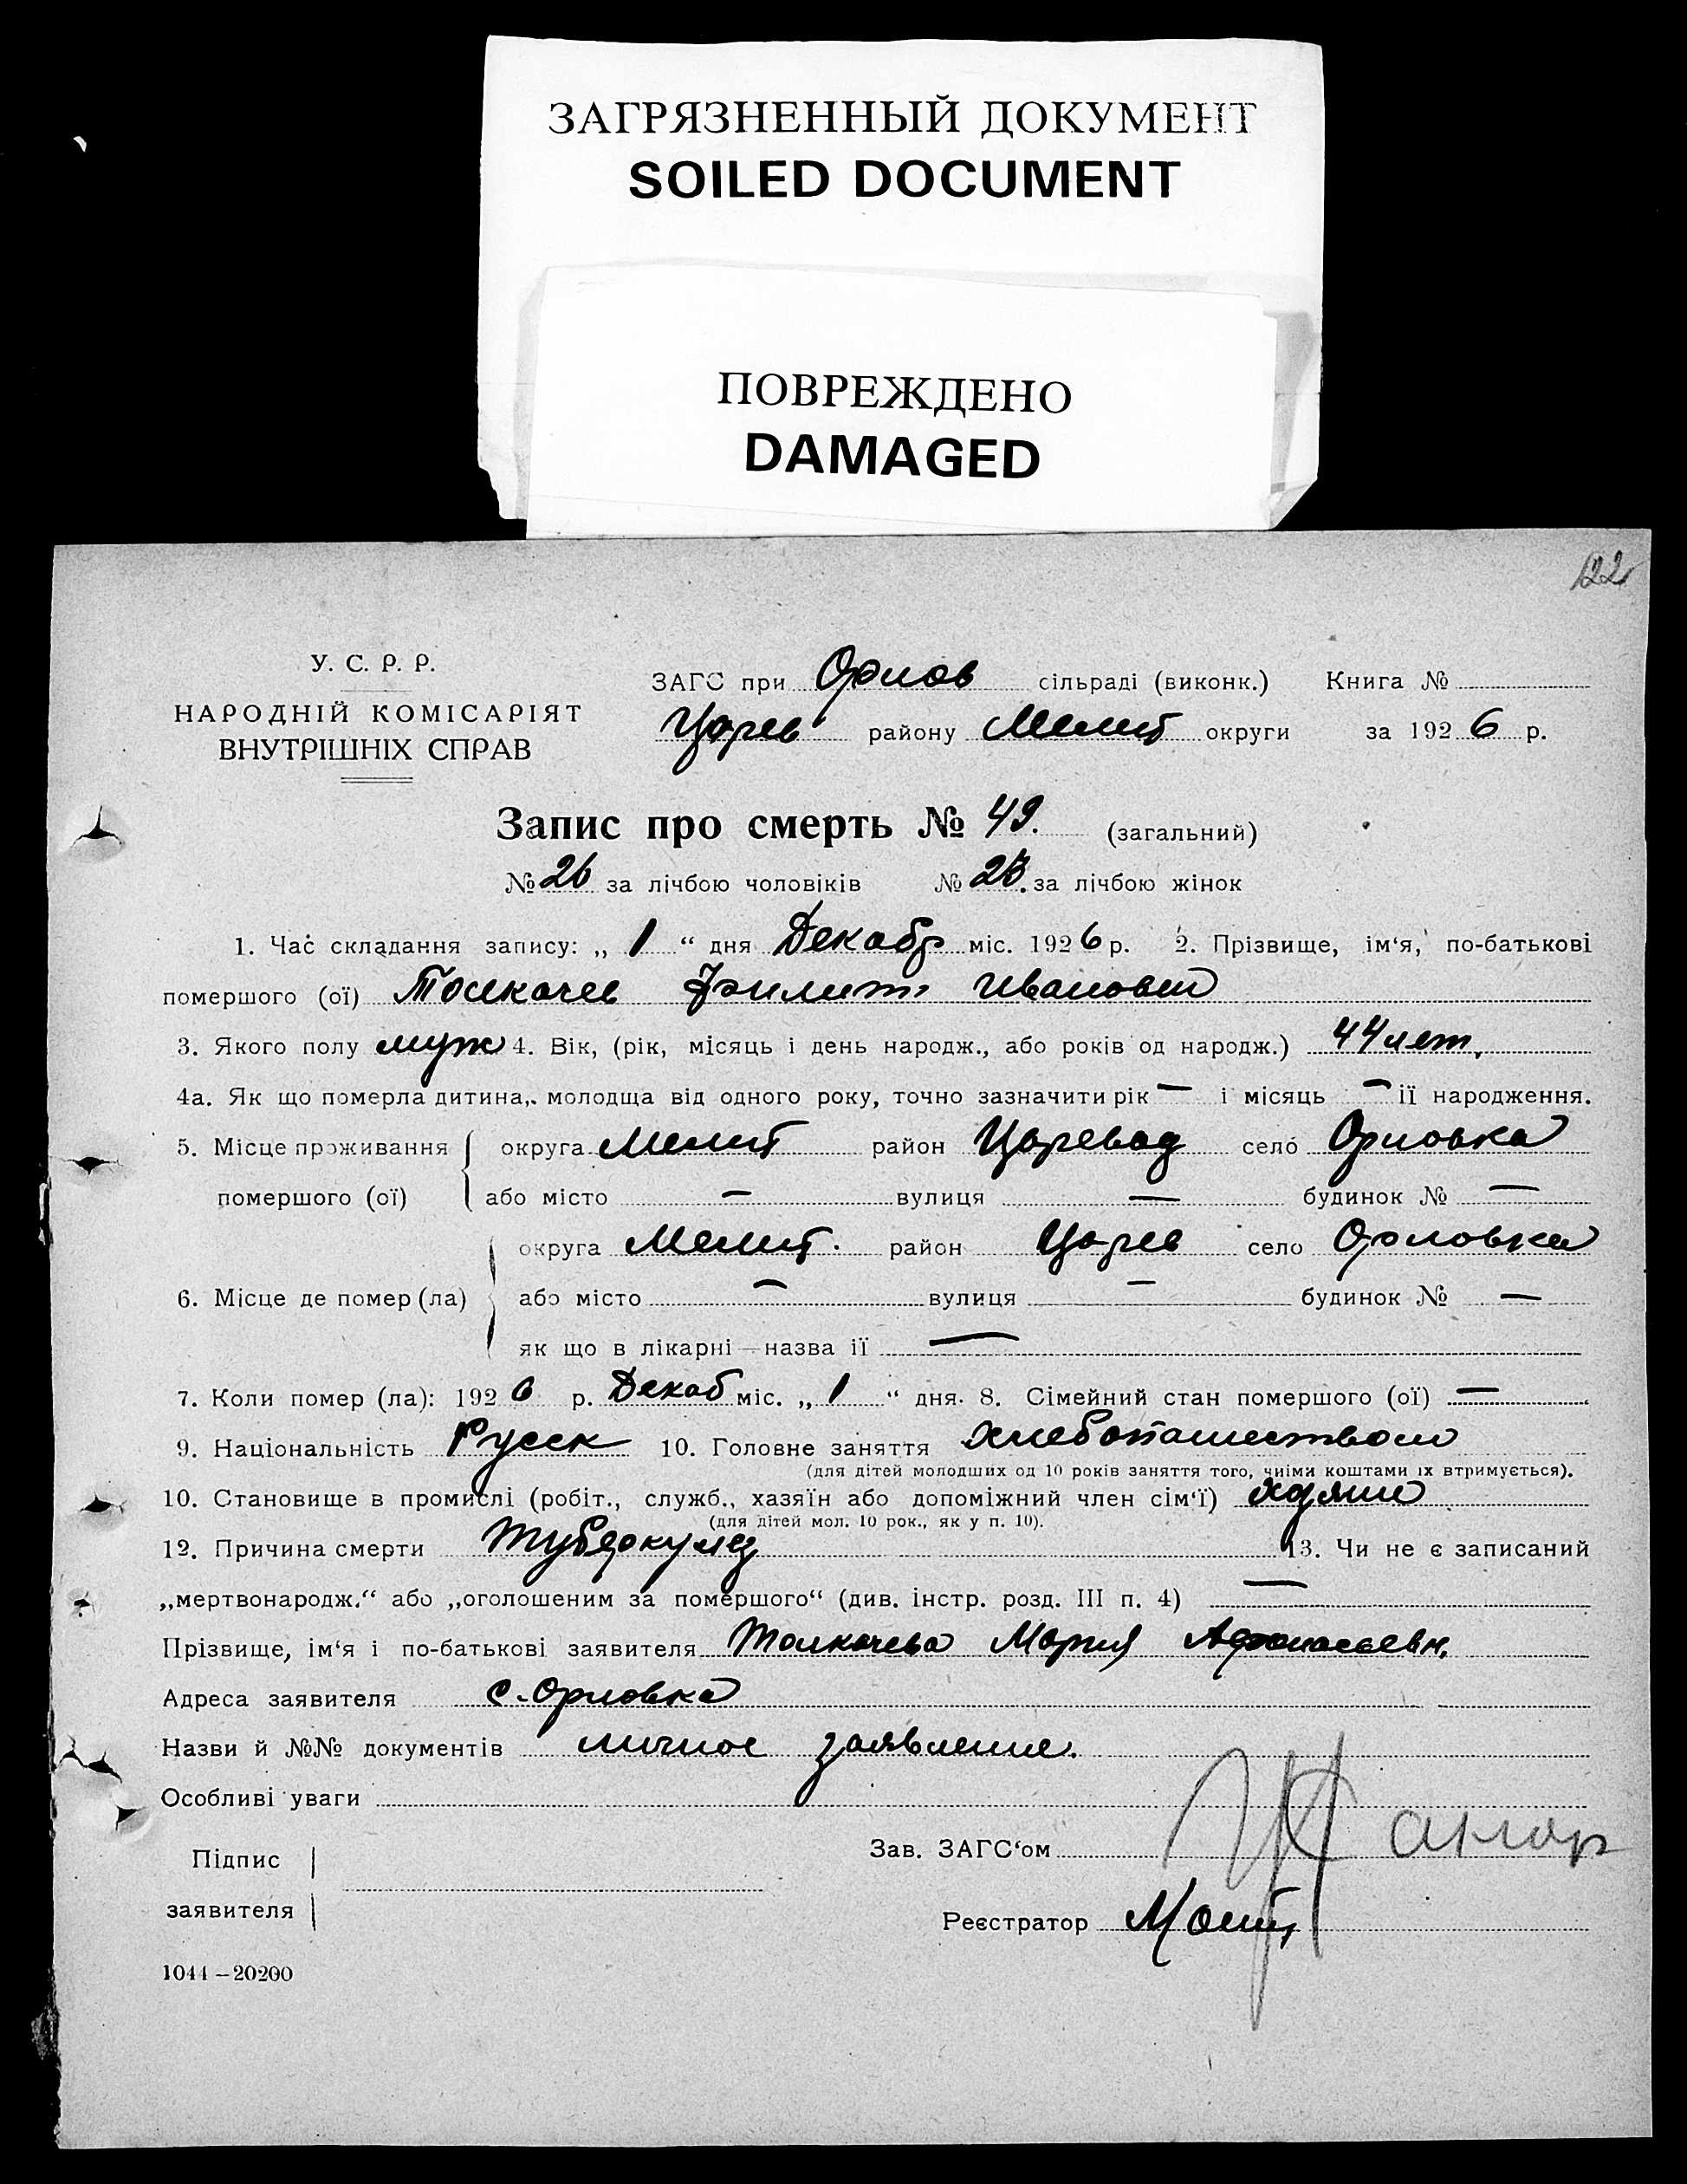 ЗАГРЯЗНЕННЫЙ ДОКУМЕНТ
SOILED DOCUMENT
ПОВРЕЖДЕНО
DAMAGED
122
У. С. Р. Р.
НАРОДНІЙ КОМІСАРІЯТ
ВНУТРІШНІХ СПРАВ
ЗАГС при Орлов сільраді (виконк.) Книга №
Царев району Мелит округи за 1926 р.
Запис про смерть № 49. (загальний)
№ 26 за лічбою чоловіків № 23. за лічбою жінок
1. Час складання запису: „ 1 “ дня Декабр міс. 1926 р. 2. Прізвище, ім‘я, по-батькові
помершого (ої) Толкачев Филипп Иванович
3. Якого полу муж 4. Вік, (рік, місяць і день народж., або років од народж.) 44 лет.
4а. Як що померла дитина, молодща від одного року, точно зазначити рік — і місяць — її народження.
5. Місце проживання округа Мелит район Царевод село Орловка
помершого (ої) або місто — вулиця — будинок № —
округа Мелит. район Царев село Орловка
6. Місце де помер (ла) або місто — вулиця — будинок № —
як що в лікарні—назва її —
7. Коли помер (ла): 1926 р. Декаб міс. „ 1 “ дня. 8. Сімейний стан помершого (ої) —
9. Національність Русск 10. Головне заняття хлебопашеством
(для дітей молодших од 10 років заняття того, чиїми коштами їх втримується).
10. Становище в промислі (робіт., служб., хазяїн або допоміжний член сім‘ї)
(для дітей мол. 10 рок., як у п. 10).
12. Причина смерти туберкулез 13. Чи не є записаний
„мертвонародж.“ або „оголошеним за помершого“ (див. інстр. розд. III п. 4) —
Прізвище, ім‘я і по-батькові заявителя Толкачева Мария Афонасьевн.
Адреса заявителя с. Орловка
Назви й №№ документів личное заявление.
Особливі уваги
Підпис
заявителя
Зав. ЗАГС‘ом
Реєстратор
1044—20200